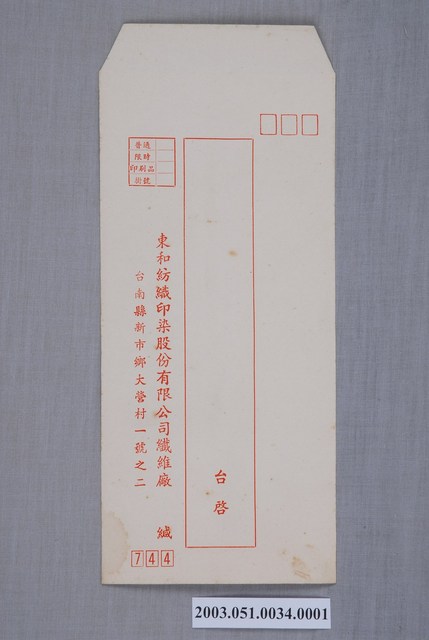 台啓
普通
限時
印刷品
掛號
東和紡織印染股份有限公司纖維廠 緘
台南縣新市鄉大營村一號之二
744
2003.051.0034.0001